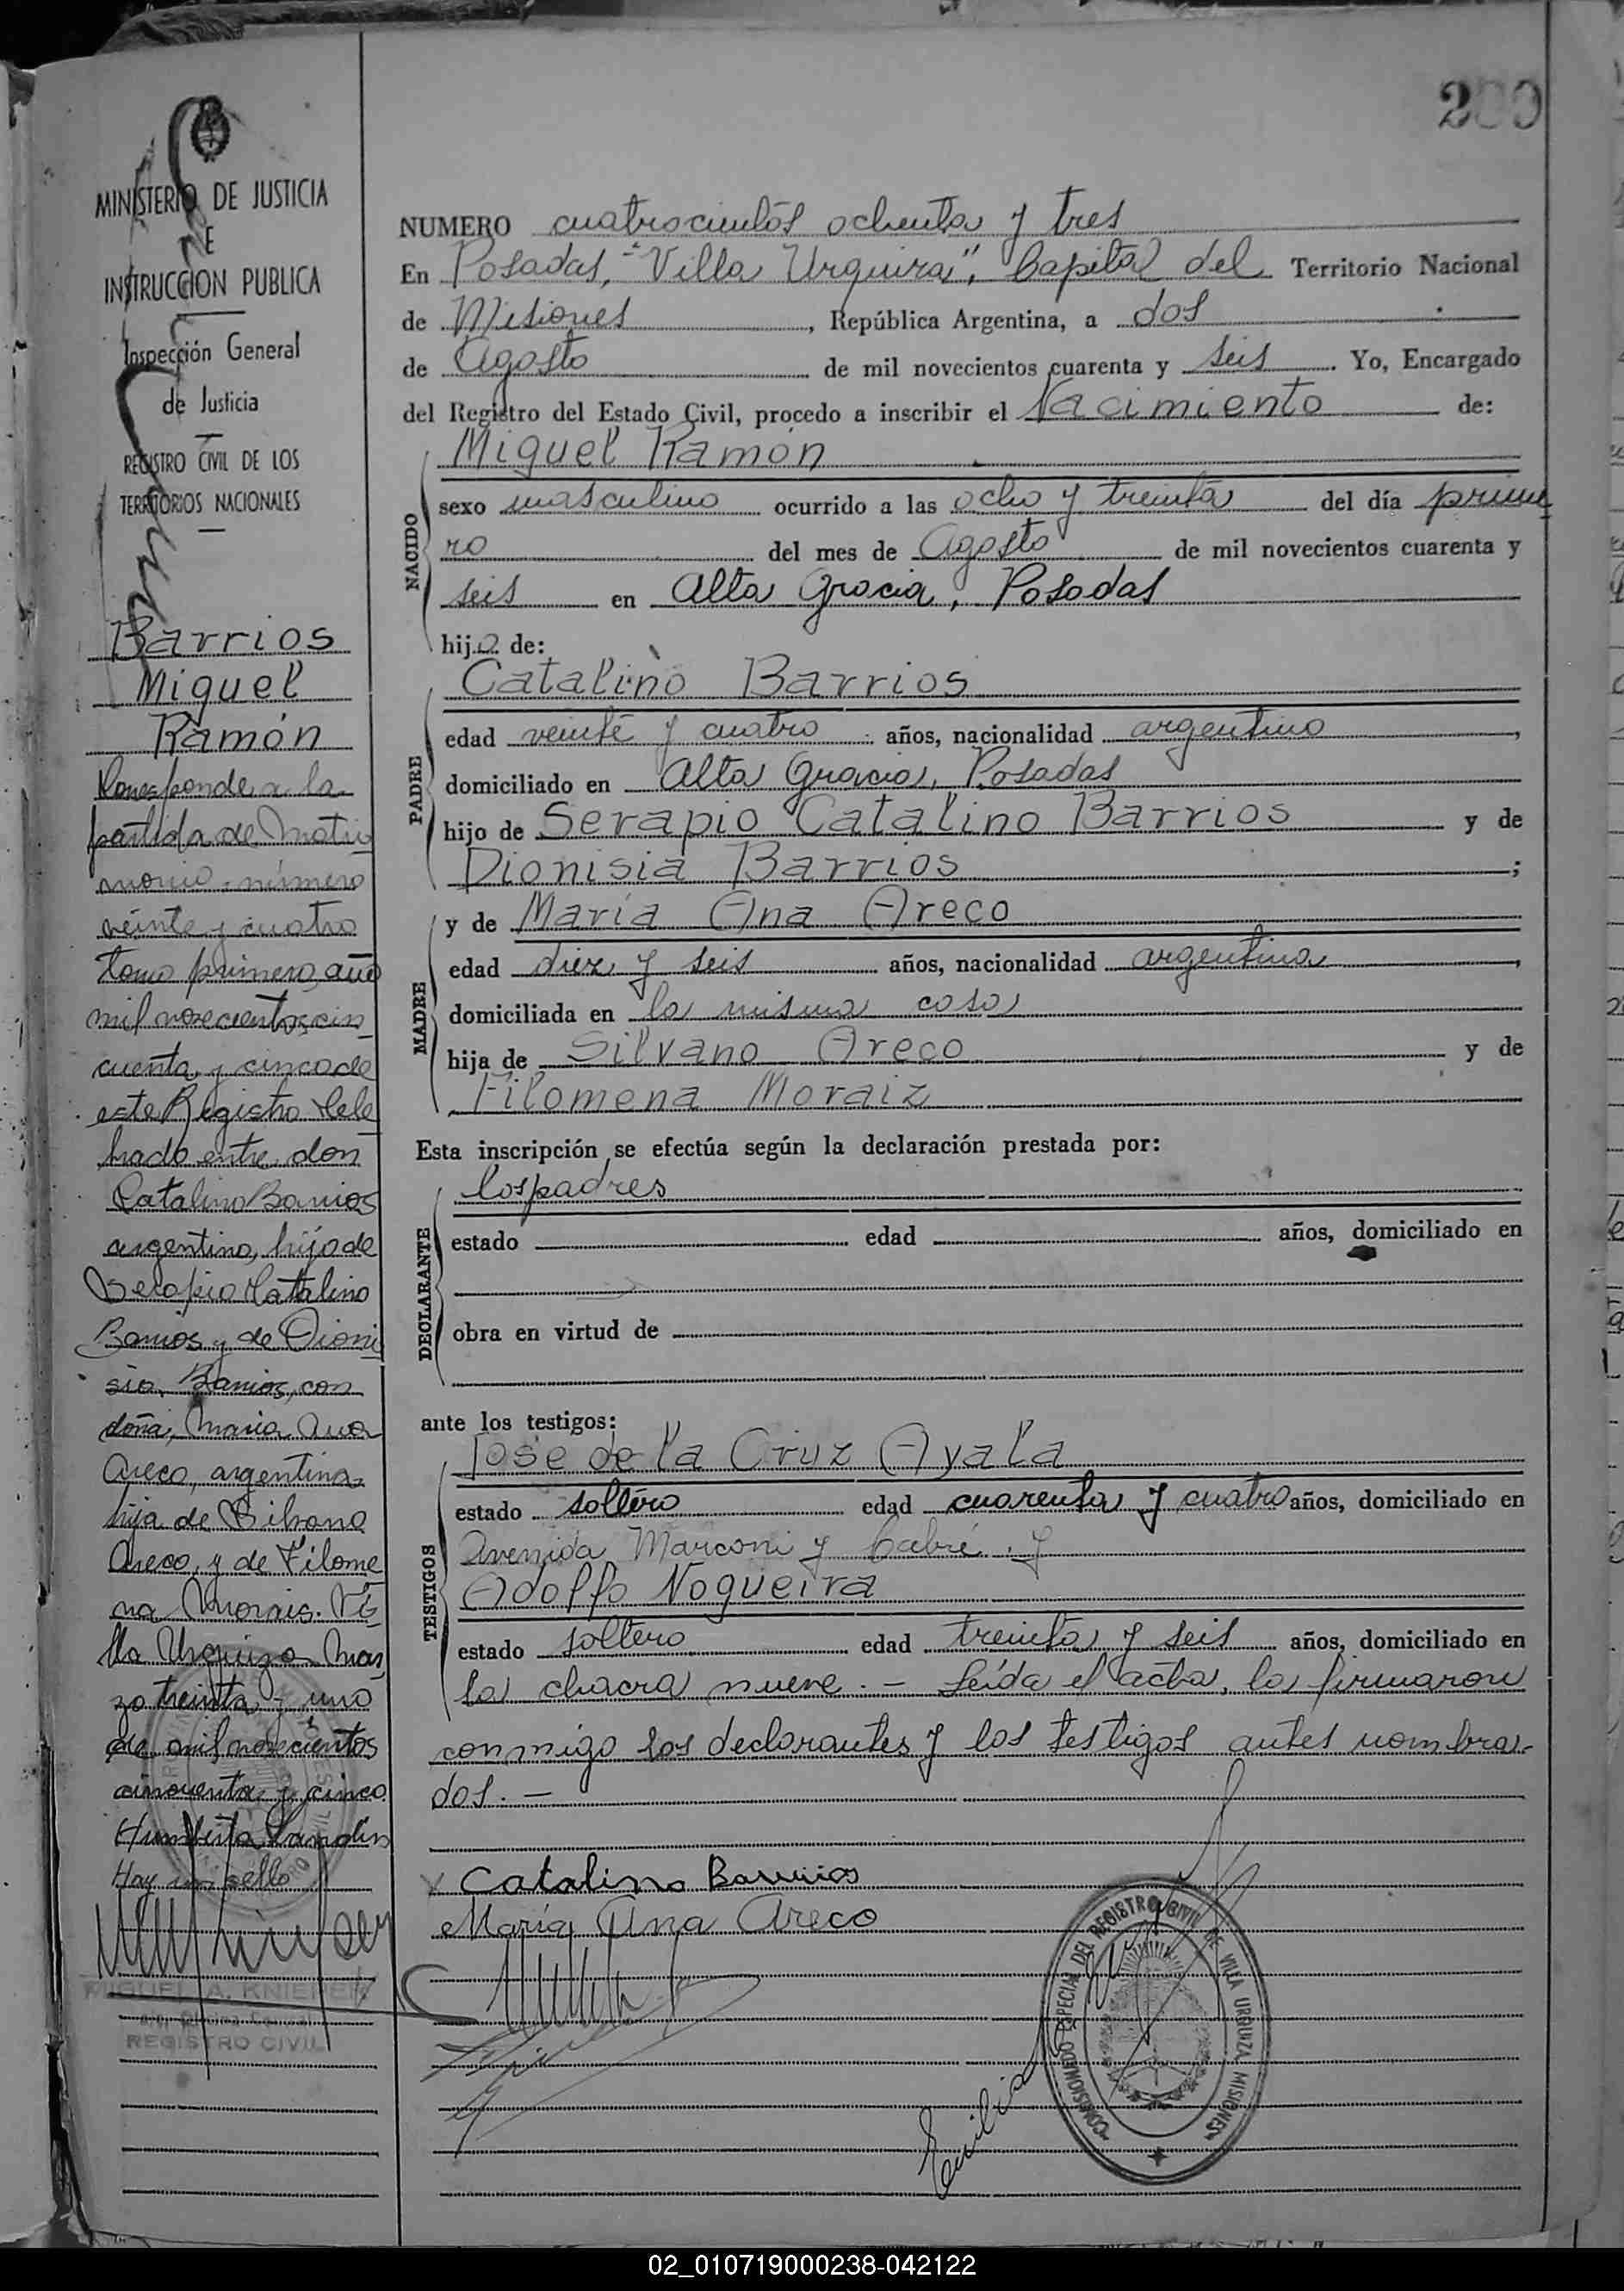 200
MINISTERIO DE JUSTICIA
E
INSTRUCCION PUBLICA
Inspección General
de Justicia
REGISTRO CIVIL DE LOS
TERRITORIOS NACIONALES
Barrios
Miguel
Ramón
Corresponde a la
partida de Matri
monio número
veinte y cuatro
tomo primero, año
mil novecientos cin
cuenta y cinco de
este Registro Cele
brado entre don
Catalino Barrios
argentino, hijo de
Serapio Catalino
Barrios y de Dioni
sia Barrios, con
doña María Ana
Areco, argentina
hija de Silvano
Areco, y de Filome
na Morais. Vi
lla Urquiza Mar
zo treinta y uno
de mil novecientos
cincuenta y cinco
Humberto
Hay un sello
MIGUEL A. KNIEPER
REGISTRO CIVIL
NUMERO cuatrocientos ochenta y tres
En Posadas, "Villa Urquiza", Capital del Territorio Nacional
de Misiones, República Argentina, a dos
de Agosto de mil novecientos cuarenta y seis. Yo, Encargado
del Registro del Estado Civil, procedo a inscribir el Nacimiento de:
NACIDO
Miguel Ramón
sexo masculino ocurrido a las ocho y treinta del día prime
ro del mes de Agosto de mil novecientos cuarenta y
seis en Alta Gracia, Posadas
hijo de:
PADRE
Catalino Barrios
edad veinte y cuatro años, nacionalidad argentino,
domiciliado en Alta Gracia, Posadas
hijo de Serapio Catalino Barrios y de
Dionisia Barrios;
MADRE
y de María Ana Areco
edad diez y seis años, nacionalidad argentina,
domiciliada en la misma casa
hija de Silvano Areco y de
Filomena Moraiz
Esta inscripción se efectúa según la declaración prestada por:
DECLARANTE
los padres
estado edad años, domiciliado en
obra en virtud de
ante los testigos:
TESTIGOS
José de la Cruz Ayala
estado soltero edad cuarenta y cuatro años, domiciliado en
Avenida Marconi y Cabré y
Adolfo Nogueira
estado soltero edad treinta y seis años, domiciliado en
la chacra nueve. - Leída el acta, la firmaron
conmigo los declarantes y los testigos antes nombra-
dos. -
Catalino Barrios
María Ana Areco
COMISIONADO ESPECIAL DEL REGISTRO CIVIL DE VILLA URQUIZA MISIONES
02_010719000238-042122